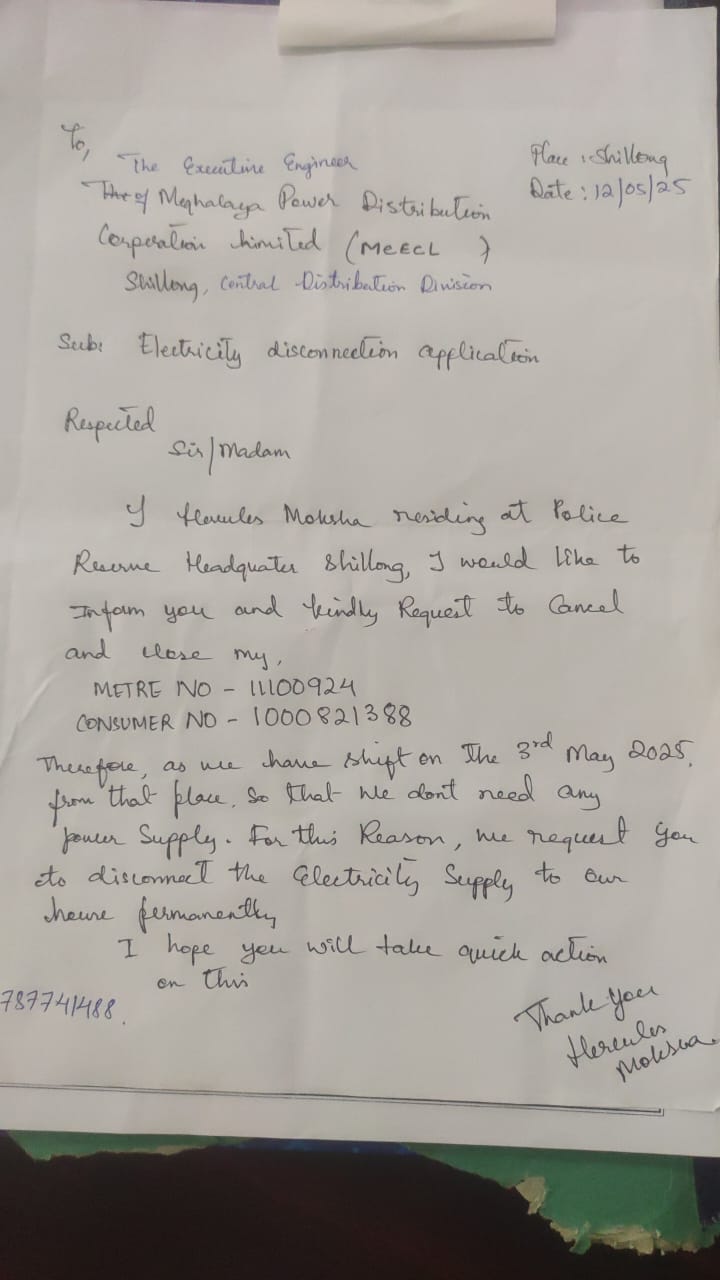 To,
Place : Shillong
The Executine Engineer
Date : 12/05/25
The of Meghalaya Power Distribution
Corporation Limited (MeECL )
Shillong, Central Distribution Division
Sub: Electricity disconnection application
Respected
Sir/Madam
I Hercules Moksha residing at Police
Reserve Headquater Shillong, I would like to
Infom you and kindly Request to Cancel
and close my,
METRE NO - 11100924
CONSUMER NO - 1000821388
Therefore, as we have shift on The 3rd May 2025,
from that place, So that We don't need any
power Supply. For this Reason, we request you
to disconnect the Electricity Supply to our
house permanently
I hope you will take quick action
on this
787741488.
Thank you
Hercules
Moksha